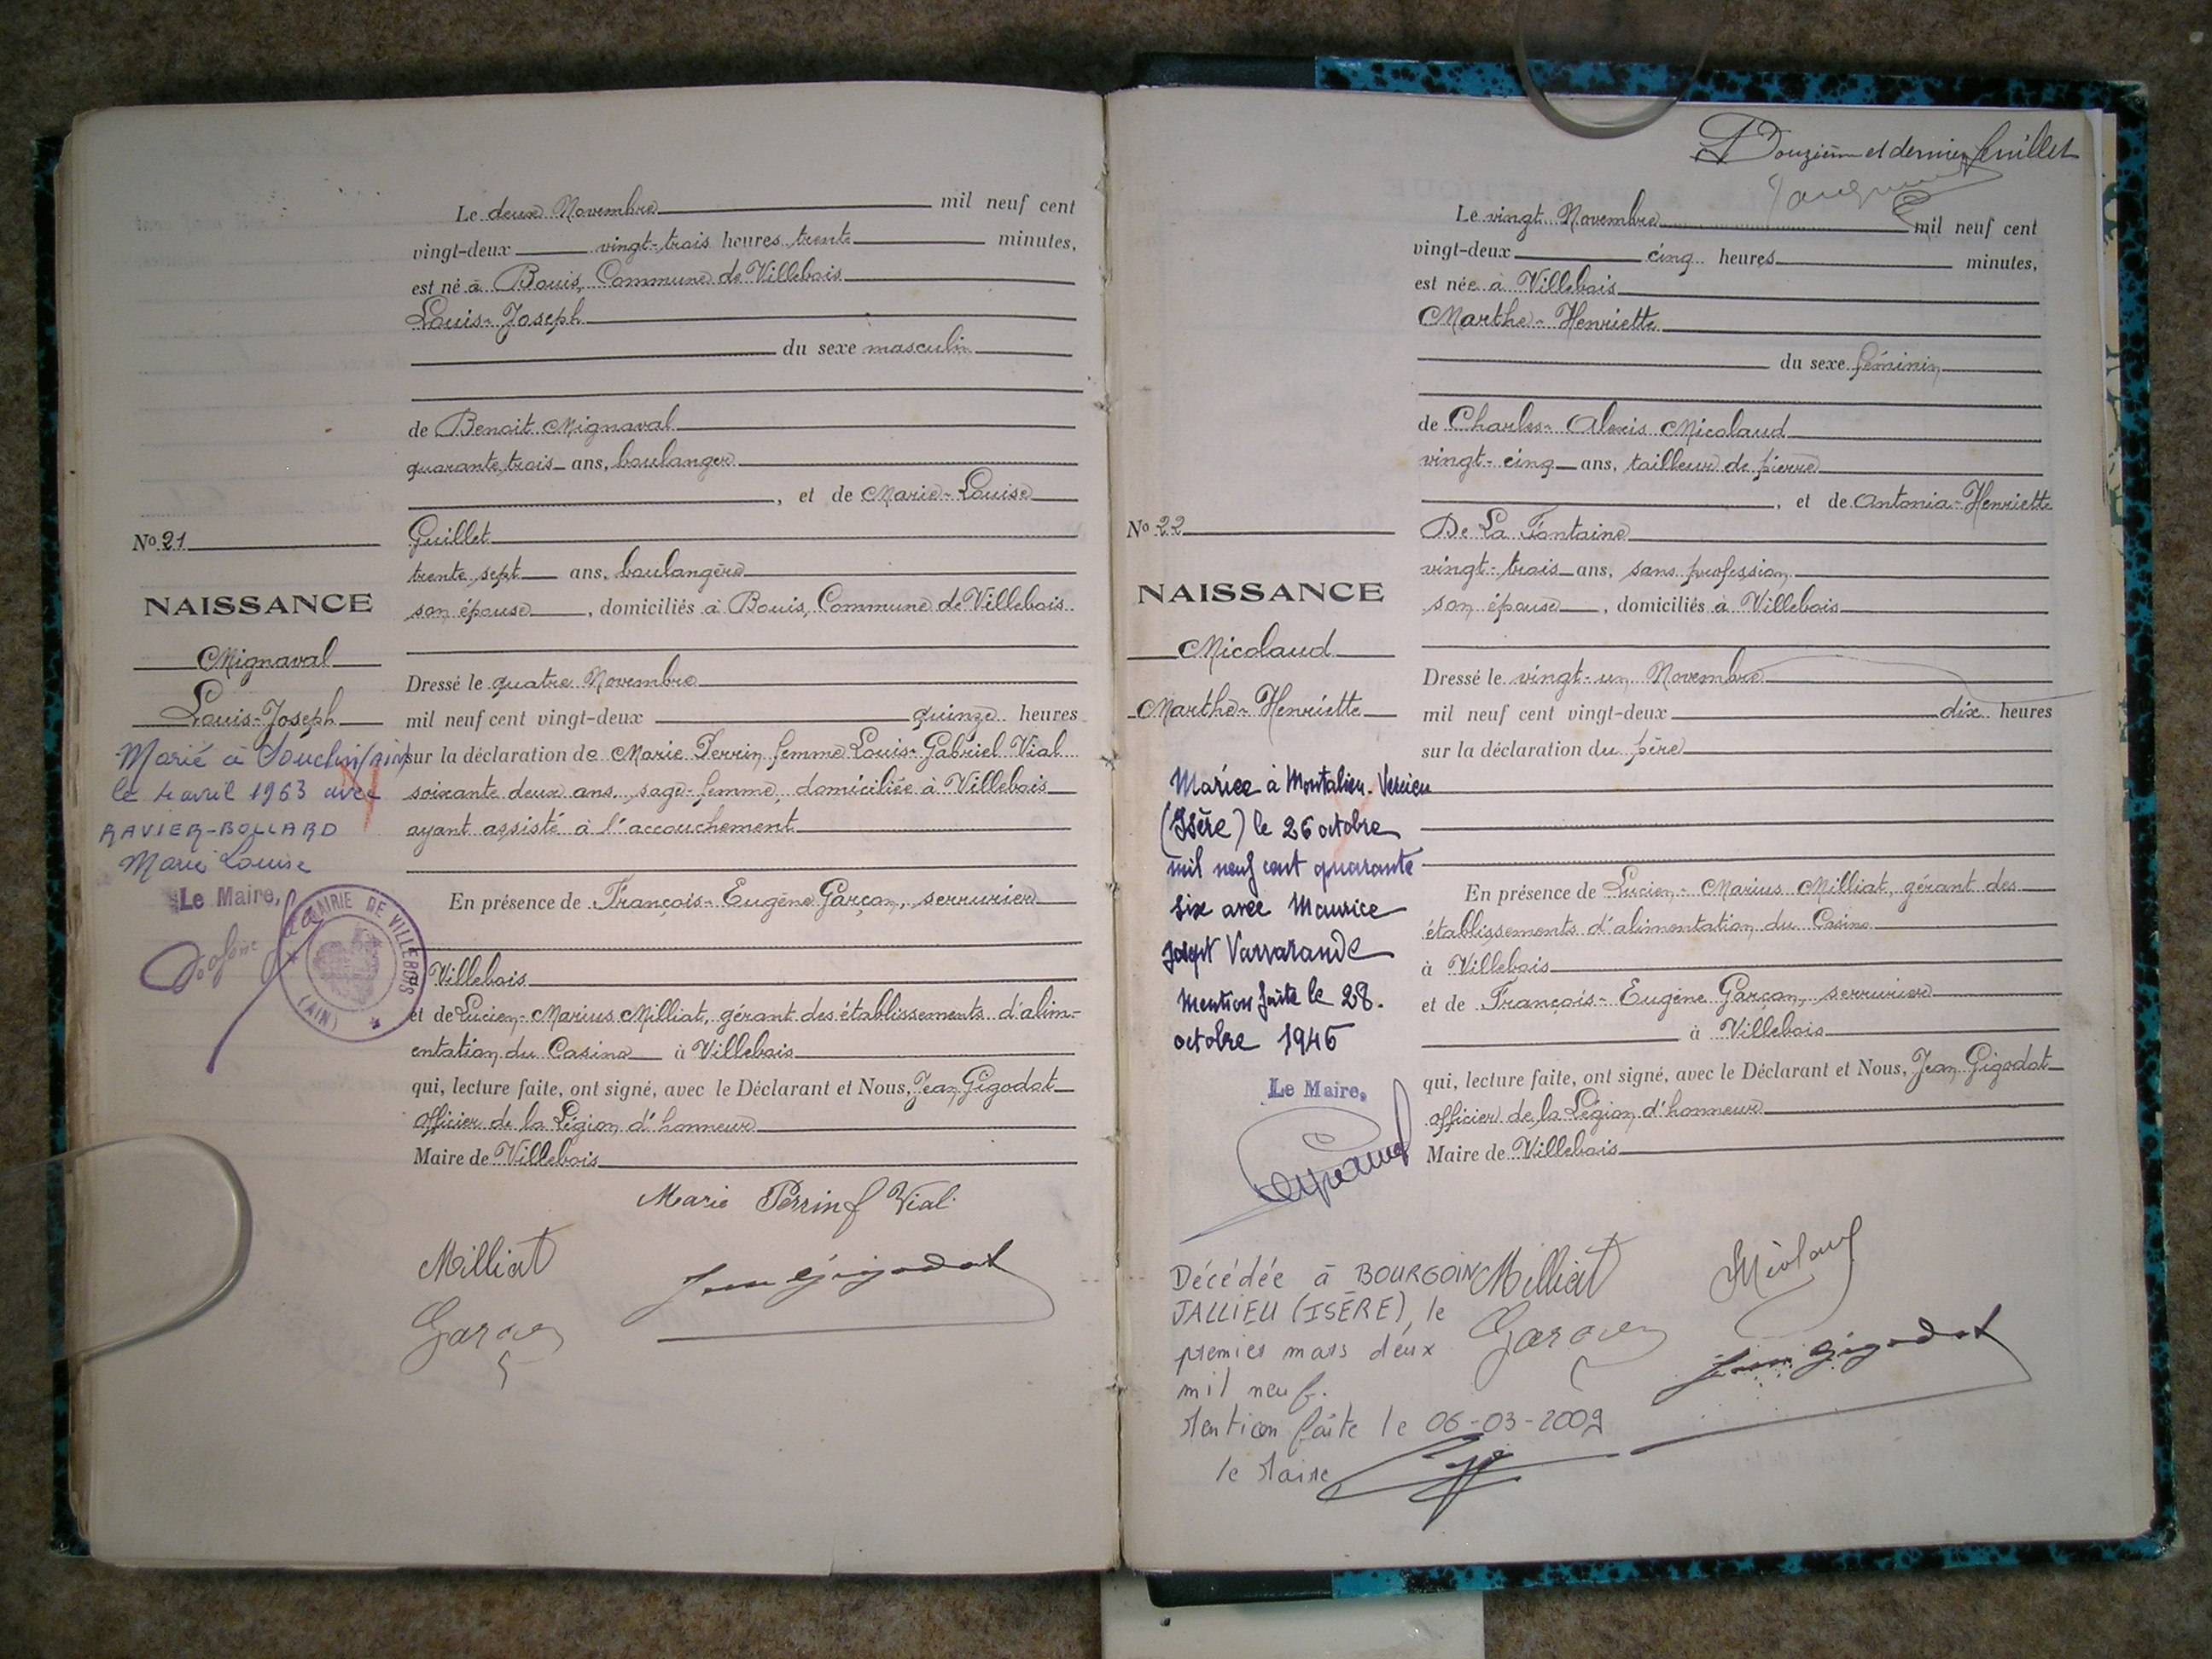 Le deux Novembre mil neuf cent
vingt-deux vingt-trois heures trente minutes,
est né à Bouis, Commune de Villebois
Louis-Joseph
du sexe masculin
de Benoit Mignaval
quarante trois ans, boulanger
, et de Marie-Louise
Guillet
trente sept ans, boulangère
son épouse , domiciliés à Bouis, Commune de Villebois
Dressé le quatre Novembre
mil neuf cent vingt-deux quinze heures
sur la déclaration de Marie Perrin, femme Louis-Gabriel Vial
soixante deux ans, sage-femme, domiciliée à Villebois
ayant assisté à l'accouchement
En présence de François-Eugène Garçon, serrurier
Villebois
et de Lucien-Marius Milliat, gérant des établissements d'alim-
entation du Casino à Villebois
qui, lecture faite, ont signé, avec le Déclarant et Nous, Jean Gigodot
officier de la Légion d'honneur
Maire de Villebois
Marie Perrin f Vial
Milliat
Jean Gigodot
Garçon
No 21
NAISSANCE
Mignaval
Louis-Joseph
Marié à Souclin (ain)
le 4 avril 1963 avec
RAVIER-BOLLARD
Marie Louise
Le Maire,
MAIRIE DE VILLEBOIS
(AIN)
Douzième et dernier feuillet
Le vingt Novembre mil neuf cent
vingt-deux cinq heures minutes,
est née à Villebois
Marthe-Henriette
du sexe féminin
de Charles-Alexis Micolaud
vingt-cinq ans, tailleur de pierre
, et de Antonia-Henriette
De La Fontaine
vingt-trois ans, sans profession
son épouse , domiciliés à Villebois
Dressé le vingt-un Novembre
mil neuf cent vingt-deux dix heures
sur la déclaration du père
En présence de Lucien-Marius Milliat, gérant des
établissements d'alimentation du Casino
à Villebois
et de François-Eugène Garçon, serrurier
à Villebois
qui, lecture faite, ont signé, avec le Déclarant et Nous, Jean Gigodot
officier de la Légion d'honneur
Maire de Villebois
No 22
NAISSANCE
Micolaud
Marthe-Henriette
Mariée à Montalieu-Vercieu
(Isère) le 26 octobre
mil neuf cent quarante
six avec Maurice
Joseph Varvarande
Mention faite le 28
octobre 1946
Le Maire,
Décédée à BOURGOIN
JALLIEU (ISÈRE), le
premier mars deux
mil neuf.
Mention faite le 06-03-2009
le Maire
Milliat
Micolaud
Garçon
Jean Gigodot